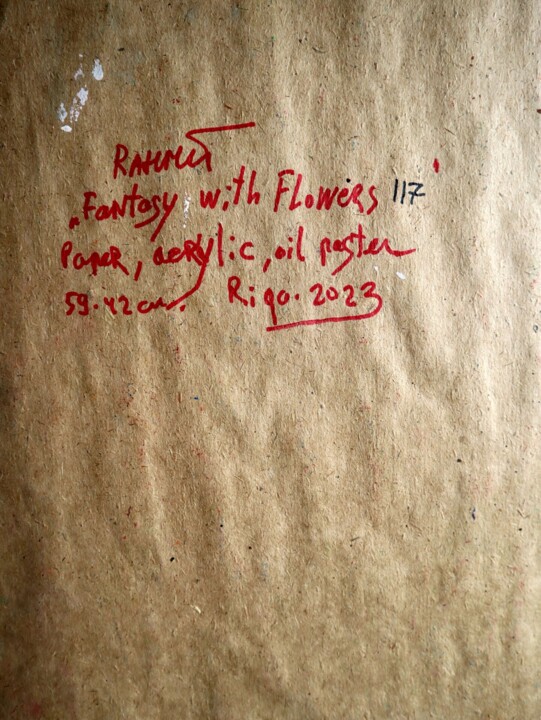 „Fantasy with Flowers 117'
Paper, acrylic, oil pastel
59.42 cm. Riga. 2023